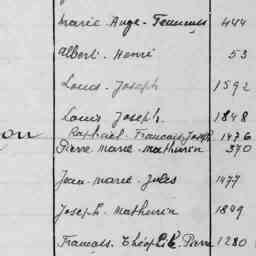 Marie-Ange-Francois 444
Albert-Henri 53
Louis-Joseph 1592
Louis Joseph 1848
on Raphael-Francois-Joseph 1476
Pierre-Marie-Mathurin 370
Jean-Marie-Jules 1477
Joseph-Mathurin 1849
François-Théophile-Pierre 1280